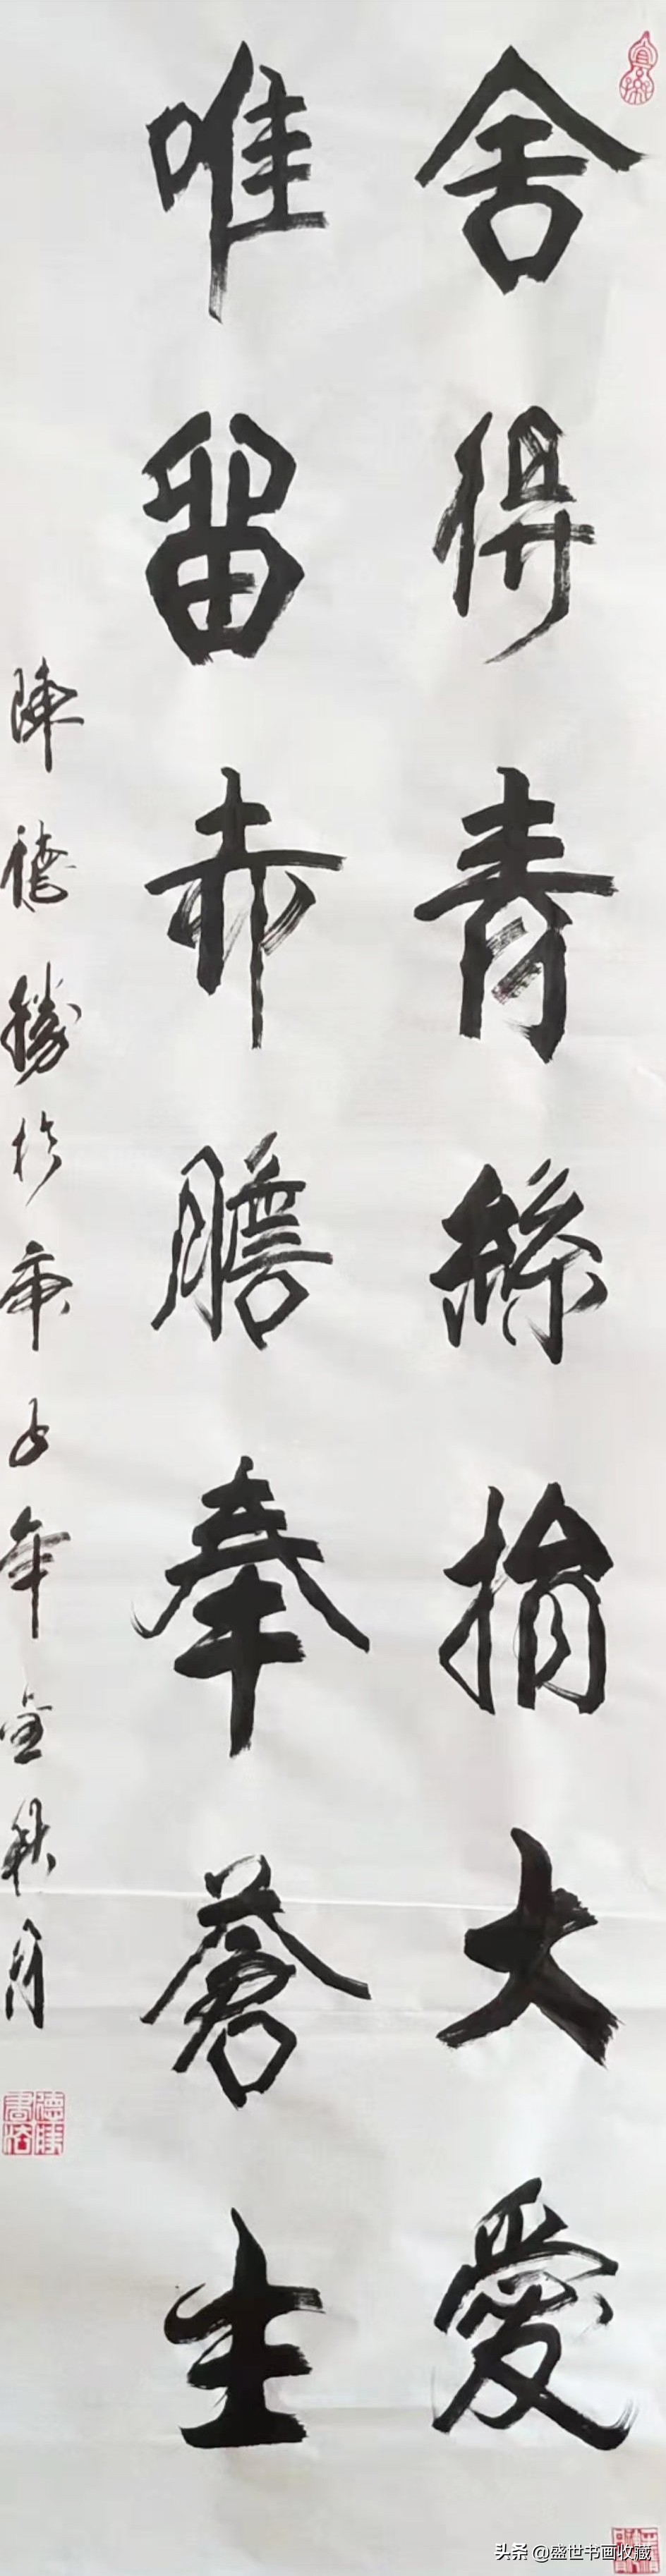 舍得青絲捐大愛
唯留赤膽奉蒼生
陳德勝於庚子年金秋月
德勝書法
头条 @盛世书画收藏